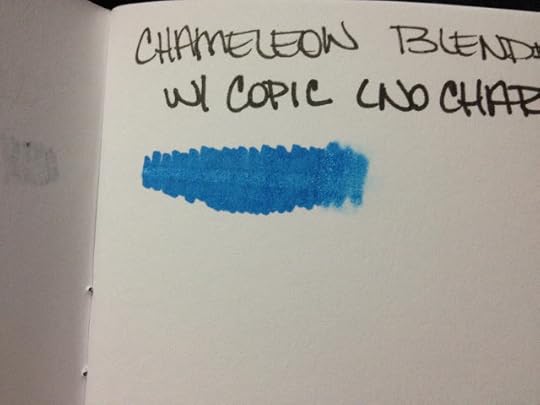 CHAMELEON BLEND
W/ COPIC (NO CHAR